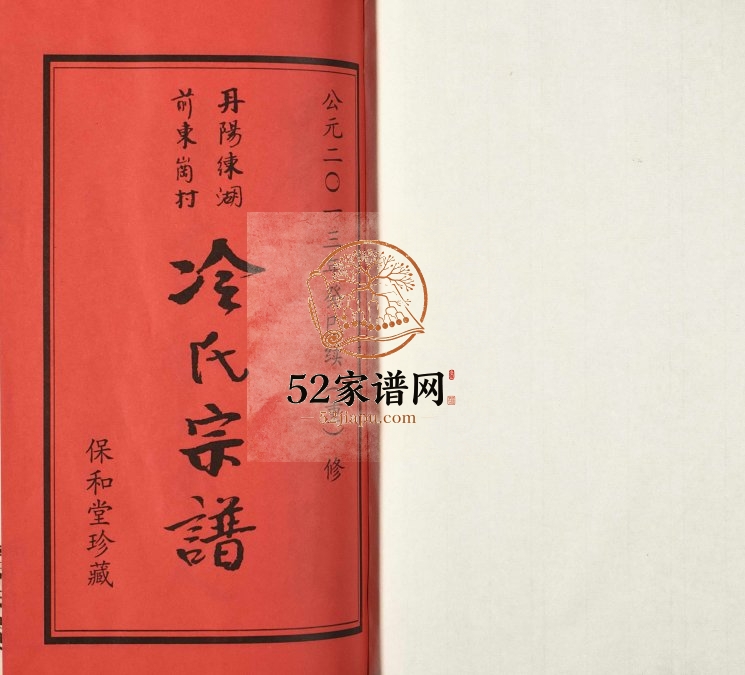 公元二〇一三年癸巳续 修
丹陽練湖
前東崗村
冷氏宗譜
保和堂珍藏
52家谱网
52jiapu.com